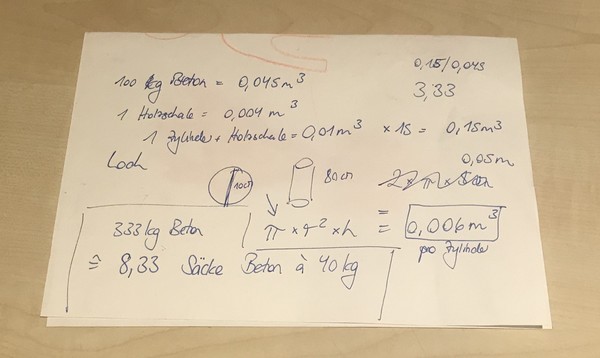 0,15/0,045
100 kg Beton = 0,045m³
3,33
1 Holzschale = 0,004 m³
1 Zylinder + Holzschale = 0,01m³ × 15 = 0,15m³
Loch
0,05m
10cm
80cm
333kg Beton
π × r² × h = 0,006m³
pro Zylinder
≙ 8,33 Säcke Beton à 40kg